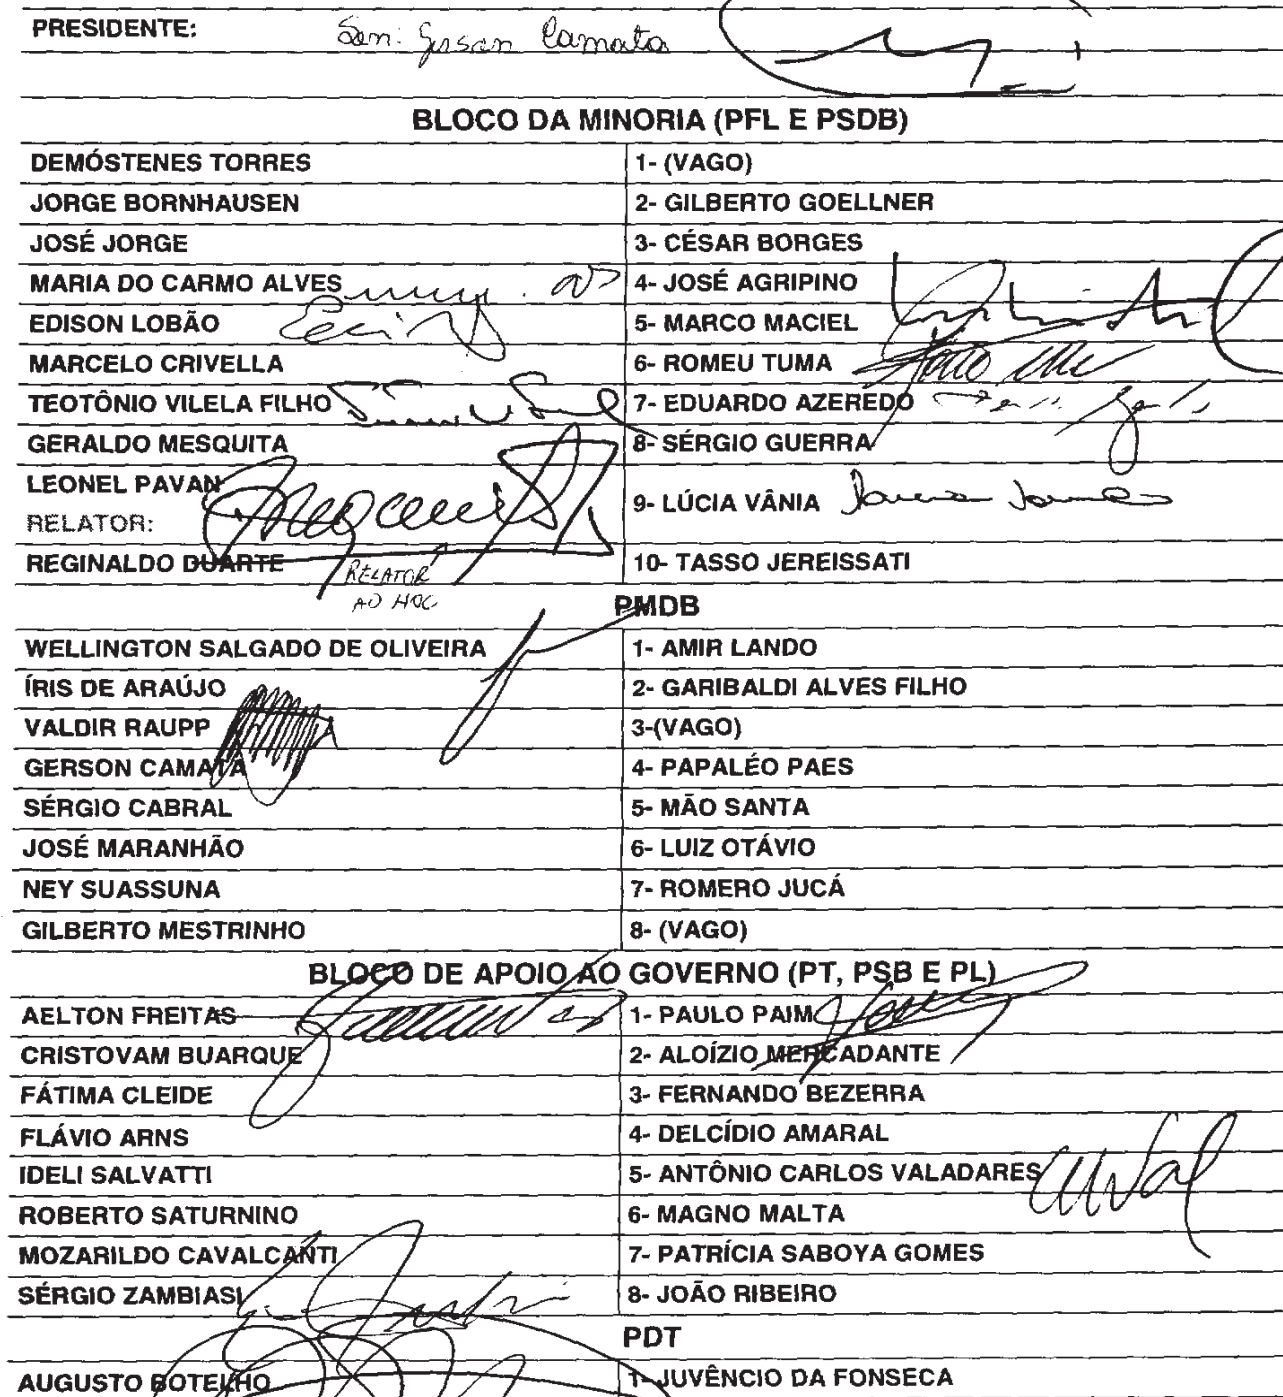 PRESIDENTE: Sen: Gerson Camata
BLOCO DA MINORIA (PFL E PSDB)
DEMÓSTENES TORRES 1- (VAGO)
JORGE BORNHAUSEN 2- GILBERTO GOELLNER
JOSÉ JORGE 3- CÉSAR BORGES
MARIA DO CARMO ALVES 4- JOSÉ AGRIPINO
EDISON LOBÃO 5- MARCO MACIEL
MARCELO CRIVELLA 6- ROMEU TUMA
TEOTÔNIO VILELA FILHO 7- EDUARDO AZEREDO
GERALDO MESQUITA 8- SÉRGIO GUERRA
LEONEL PAVAN 9- LÚCIA VÂNIA
RELATOR:
REGINALDO DUARTE 10- TASSO JEREISSATI
RELATOR
AD HOC
PMDB
WELLINGTON SALGADO DE OLIVEIRA 1- AMIR LANDO
ÍRIS DE ARAÚJO 2- GARIBALDI ALVES FILHO
VALDIR RAUPP 3-(VAGO)
GERSON CAMATA 4- PAPALÉO PAES
SÉRGIO CABRAL 5- MÃO SANTA
JOSÉ MARANHÃO 6- LUIZ OTÁVIO
NEY SUASSUNA 7- ROMERO JUCÁ
GILBERTO MESTRINHO 8- (VAGO)
BLOCO DE APOIO AO GOVERNO (PT, PSB E PL)
AELTON FREITAS 1- PAULO PAIM
CRISTOVAM BUARQUE 2- ALOÍZIO MERCADANTE
FÁTIMA CLEIDE 3- FERNANDO BEZERRA
FLÁVIO ARNS 4- DELCÍDIO AMARAL
IDELI SALVATTI 5- ANTÔNIO CARLOS VALADARES
ROBERTO SATURNINO 6- MAGNO MALTA
MOZARILDO CAVALCANTI 7- PATRÍCIA SABOYA GOMES
SÉRGIO ZAMBIASI 8- JOÃO RIBEIRO
PDT
AUGUSTO BOTELHO 1- JUVÊNCIO DA FONSECA